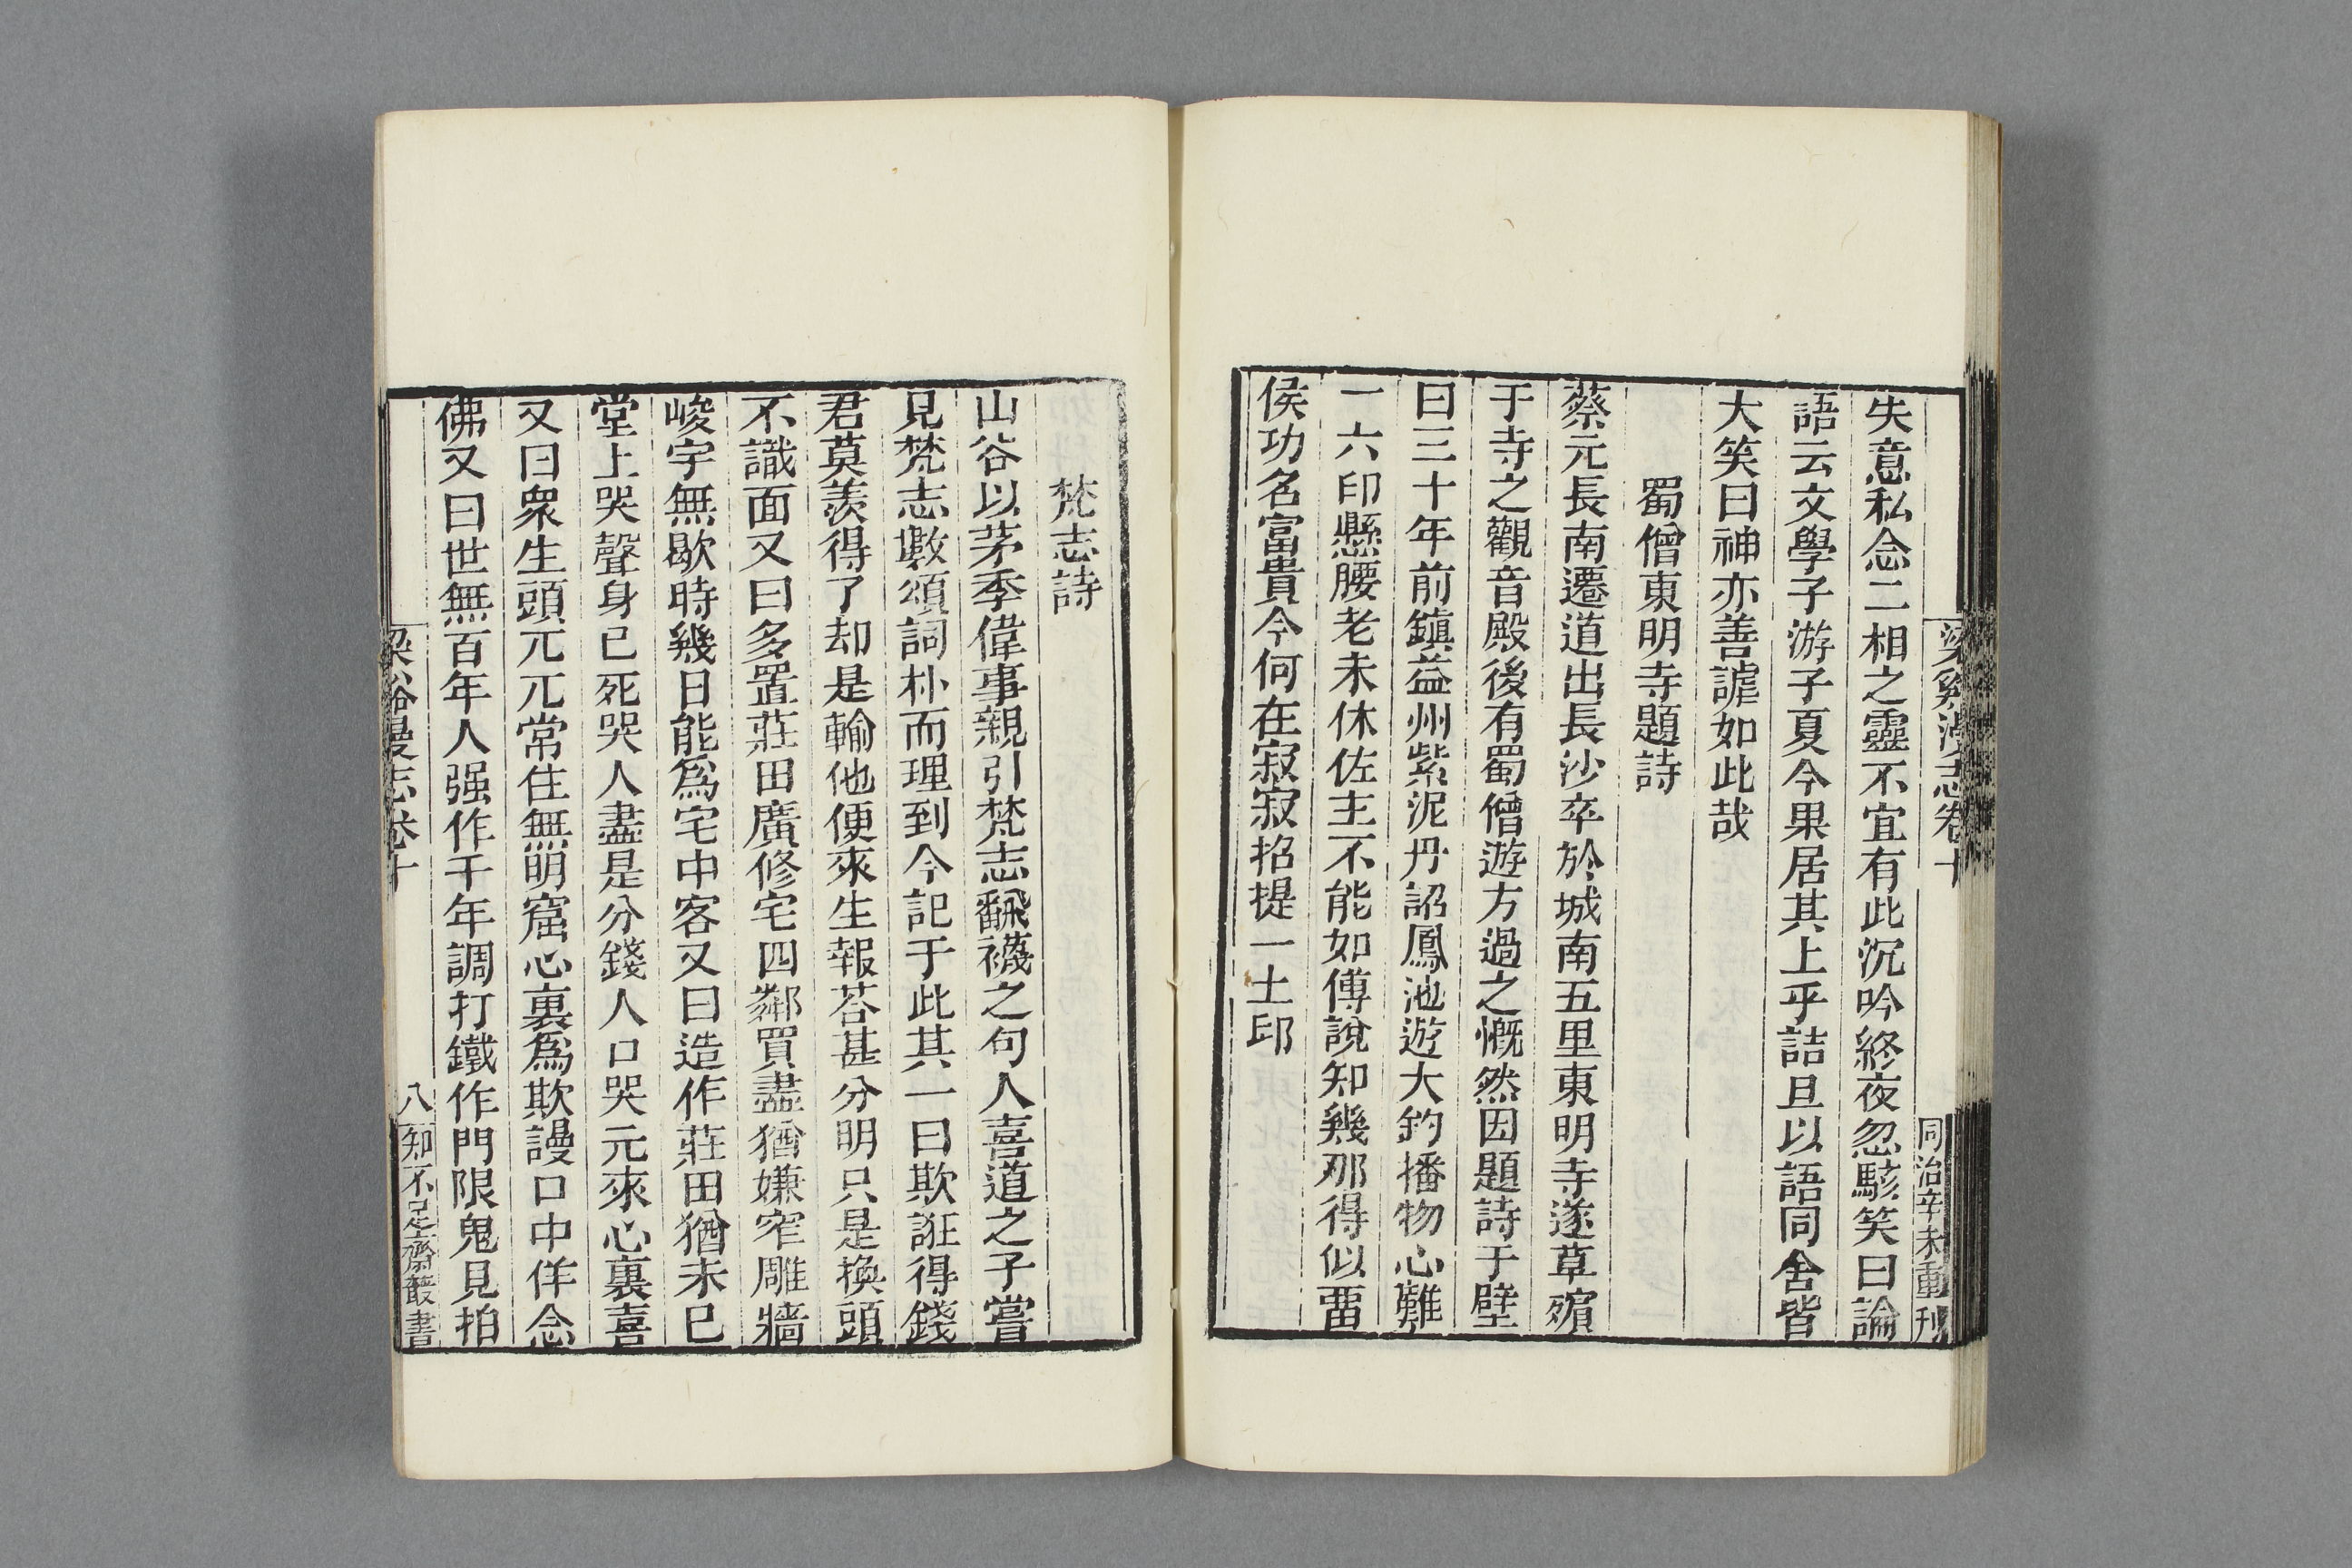 梁谿漫志卷十
同治辛未重刊
失意私念二相之靈不宜有此沉吟終夜忽駭笑曰論
語云文學子游子夏今果居其上乎詰旦以語同舍皆
大笑曰神亦善謔如此哉
蜀僧東明寺題詩
蔡元長南遷道出長沙卒於城南五里東明寺遂草殯
于寺之觀音殿後有蜀僧遊方過之慨然因題詩于壁
曰三十年前鎮益州紫泥丹詔鳳池遊大鈞播物心難
一六印懸腰老未休佐主不能如傅說知幾那得似畱
侯功名富貴今何在寂寂招提一土邱
梵志詩
山谷以茅季偉事親引梵志翻襪之句人喜道之子嘗
見梵志數頌詞朴而理到今記于此其一曰欺誑得錢
君莫羨得了却是輸他便來生報荅甚分明只是換頭
不識面又曰多置莊田廣修宅四鄰買盡猶嫌窄雕牆
峻宇無歇時幾日能爲宅中客又曰造作莊田猶未已
堂上哭聲身已死哭人盡是分錢人口哭元來心裏喜
又曰衆生頭兀兀常住無明窟心裏爲欺謾口中佯念
佛又曰世無百年人强作千年調打鐵作門限鬼見拍
梁谿漫志卷十
八
知不足齋叢書